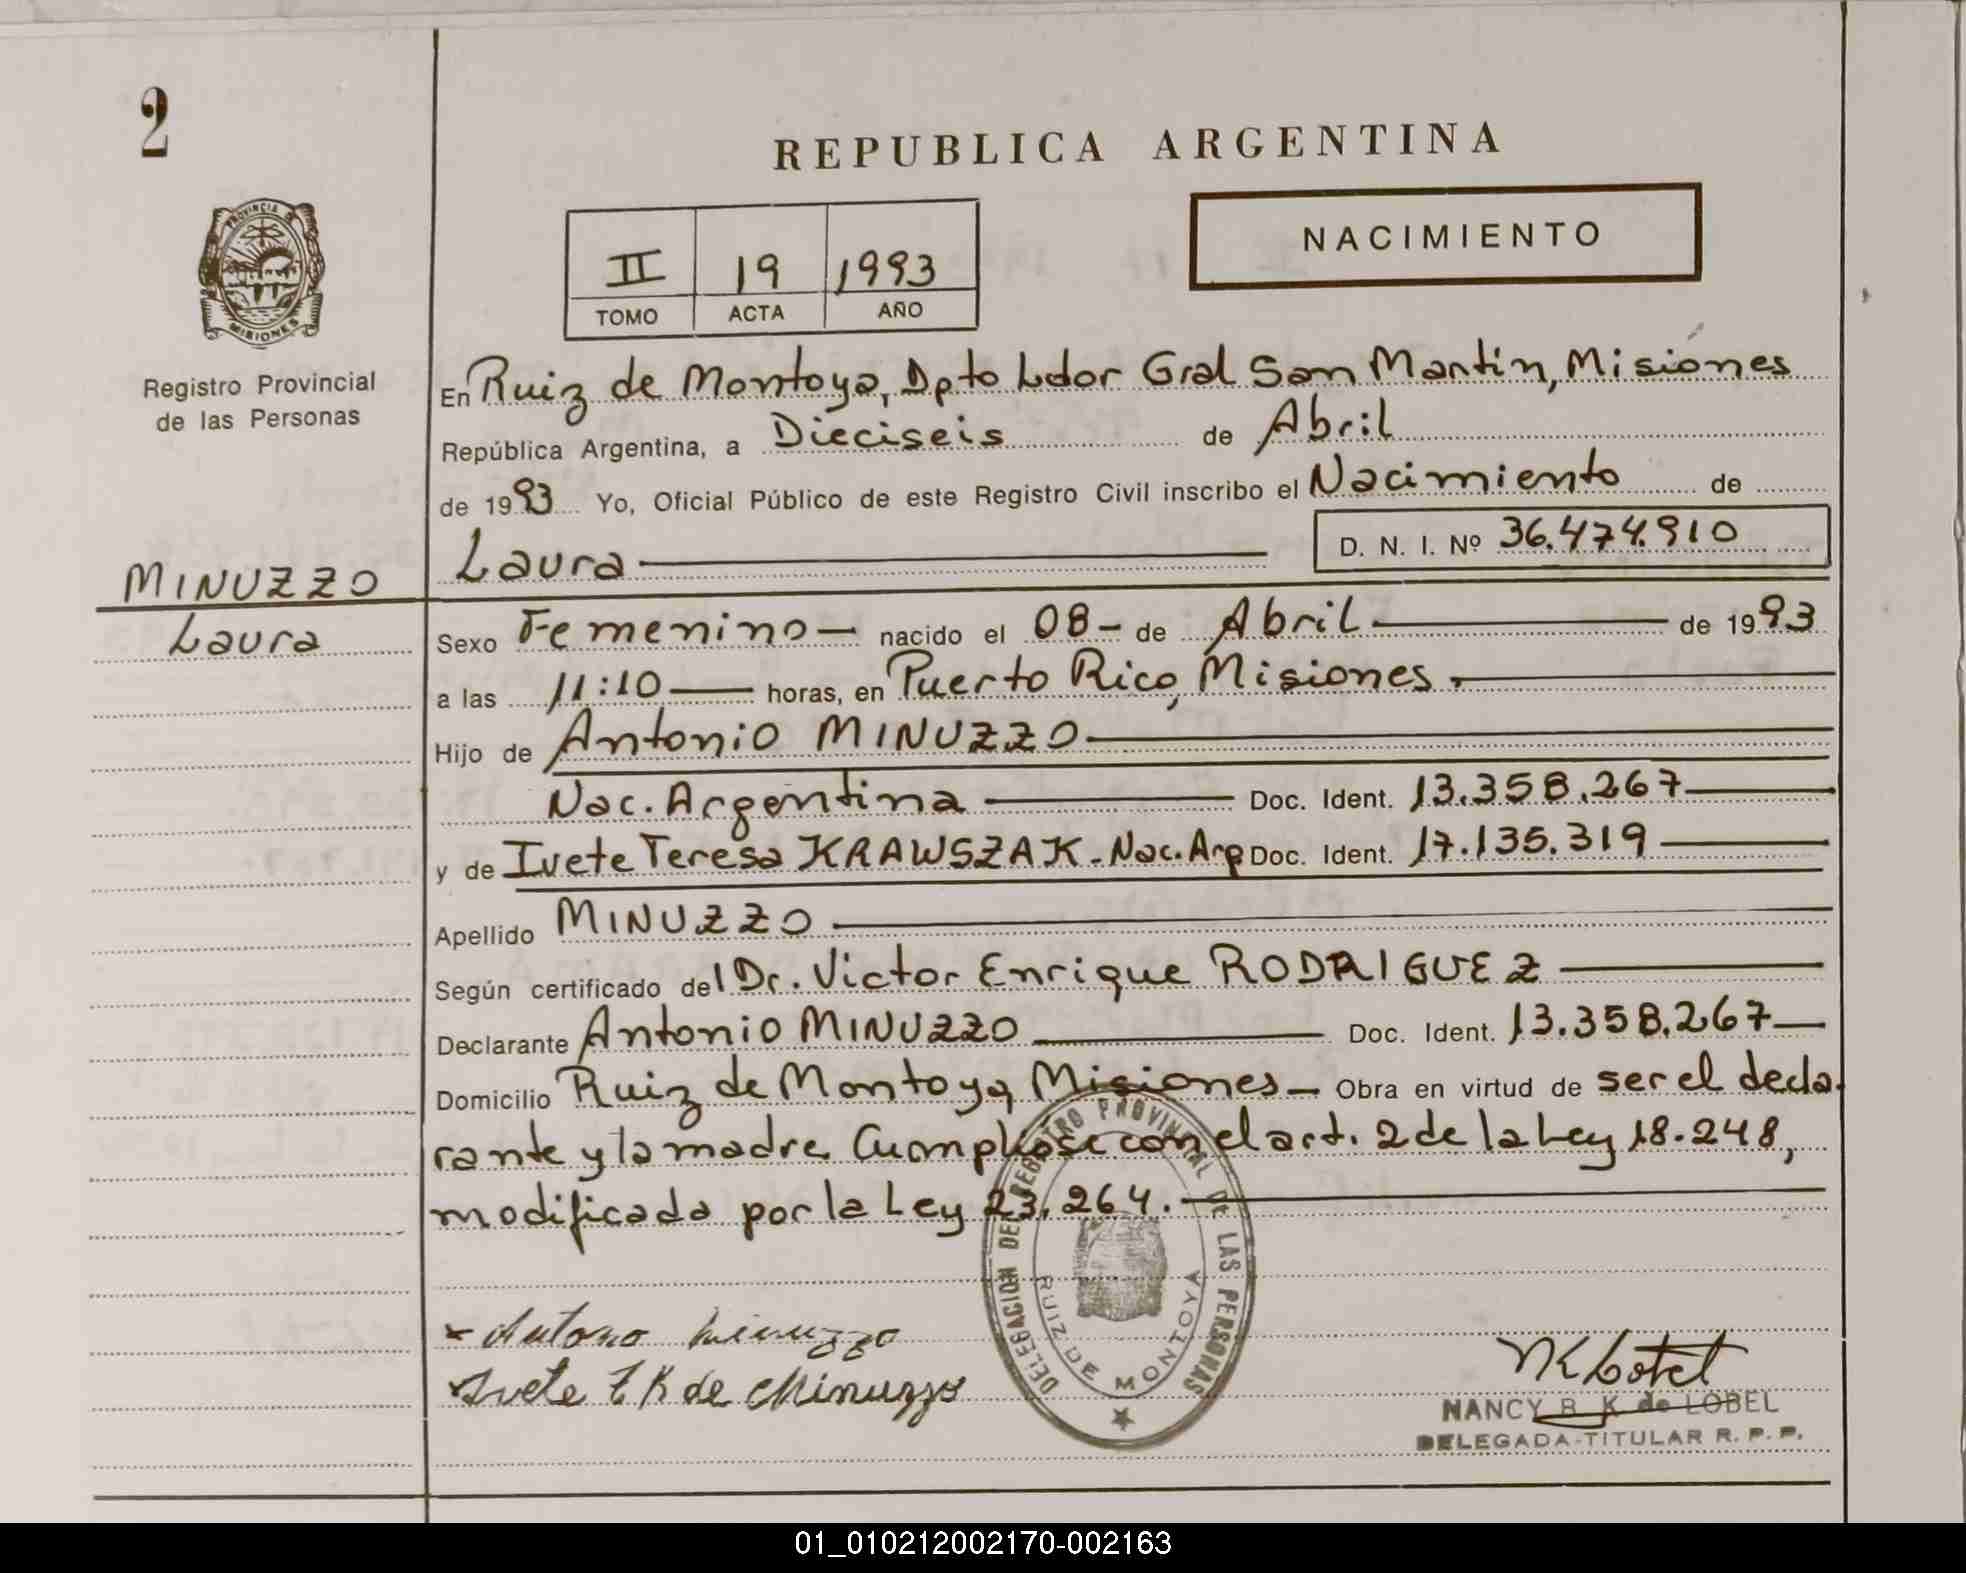 2
REPUBLICA ARGENTINA
PROVINCIA DE
MISIONES
II 19 1993
TOMO ACTA AÑO
NACIMIENTO
Registro Provincial
de las Personas
En Ruiz de Montoya, Dpto Ldor Gral San Martín, Misiones
República Argentina, a Dieciseis de Abril
de 1993 Yo, Oficial Público de este Registro Civil inscribo el Nacimiento de
Laura D. N. I. Nº 36.474.910
MINUZZO
Laura
Sexo Femenino — nacido el 08 - de Abril — de 1993
a las 11:10 — horas, en Puerto Rico, Misiones. —
Hijo de Antonio MINUZZO —
Nac. Argentina — Doc. Ident. 13.358.267 —
y de Ivete Teresa KRAWSZAK - Nac. Arg Doc. Ident. 17.135.319 —
Apellido MINUZZO —
Según certificado del Dr. Victor Enrique RODRIGUEZ —
Declarante Antonio MINUZZO — Doc. Ident. 13.358.267 —
Domicilio Ruiz de Montoya, Misiones — Obra en virtud de ser el decla-
rante y la madre. Cumpliose con el art. 2 de la Ley 18.248,
modificada por la Ley 23.264. —
DELEGACION DEL REGISTRO PROVINCIAL DE LAS PERSONAS
RUIZ DE MONTOYA
Antonio Minuzzo
Ivete T K de Minuzzo
NKLobel
NANCY B. K de LOBEL
DELEGADA-TITULAR R. P. P.
01_010212002170-002163